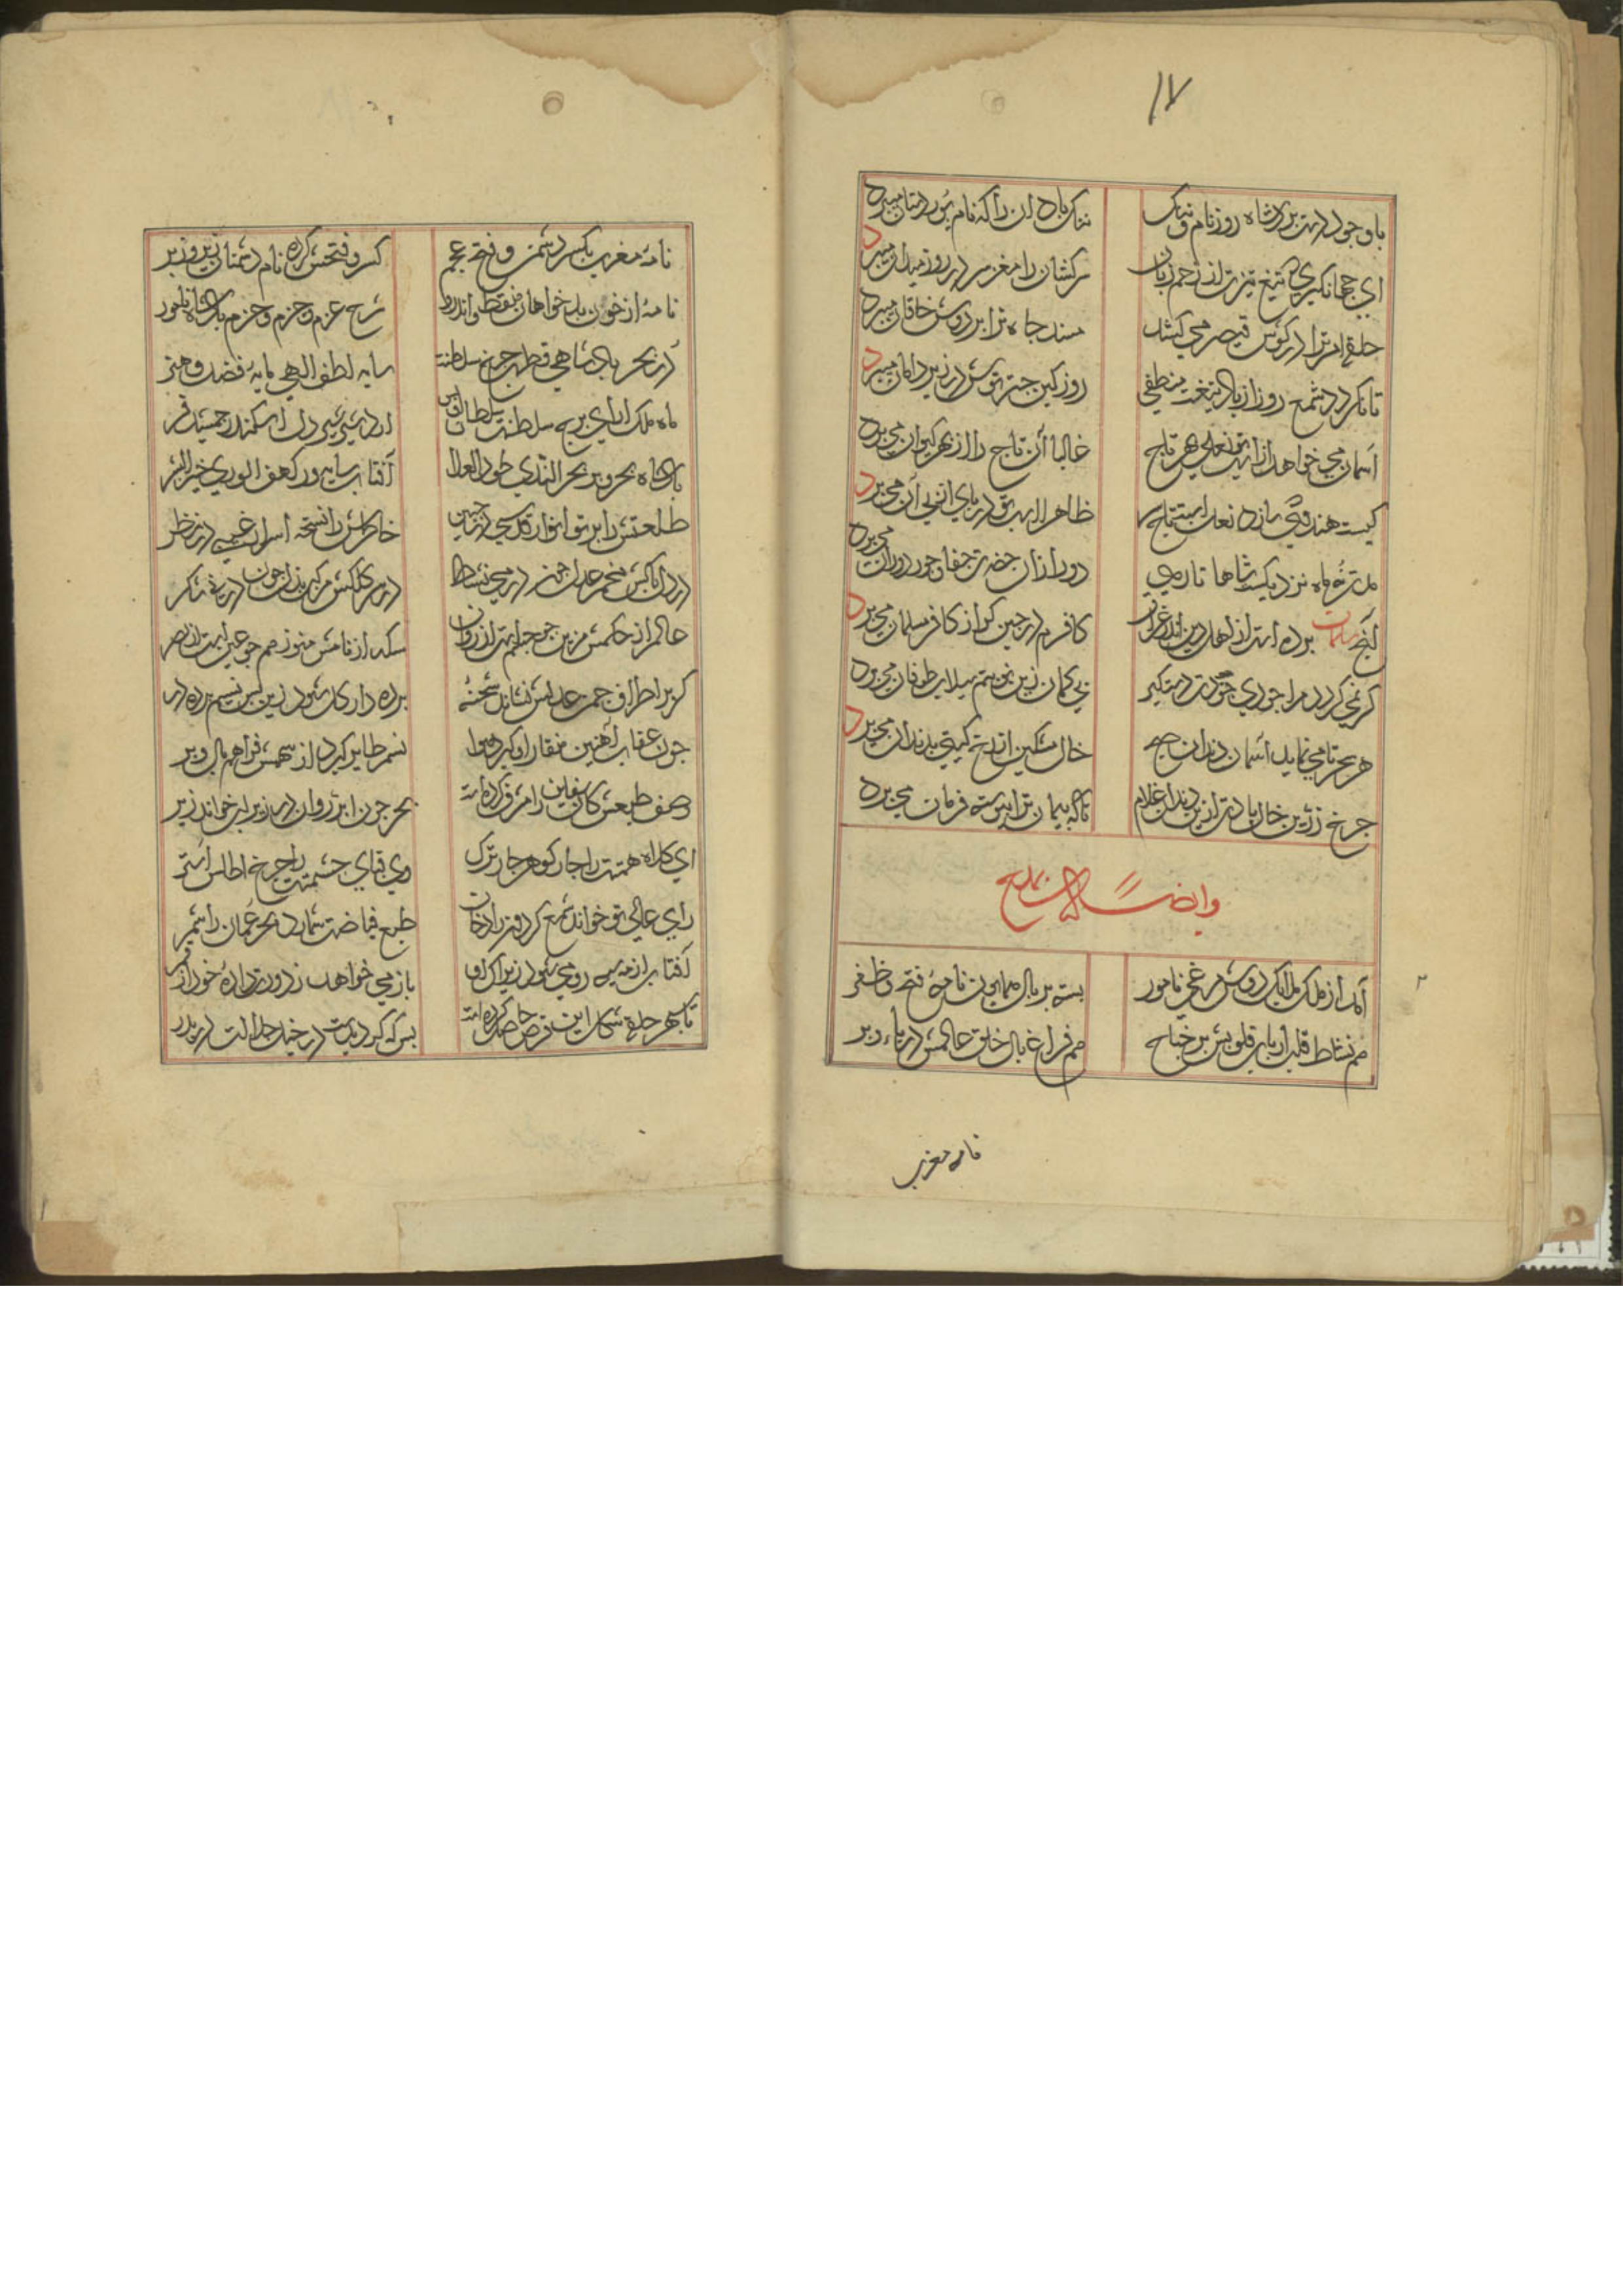 ١٧
با وجود دستبردت شاه روز نام و ننک
ننک باد ان را که نام پور دستان میبرد
ای جهانکیری که تیغ تیزت از زخم زبان
سرکشان را مغز سر در روز میدان میبرد
حلقه امر ترا در کوش قیصر می کشد
مسند جاه ترا بر دوش خاقان میبرد
تا نکردد شمع روز از باد تیغت منطفی
روز کین چترتوش در زیر دامان میبرد
آسمان می خواهد از نعل
غالبا آن تاج را از بهر کیوان می برد
کیست هندوئی
ظاهرا در پای آن می برد
مدت نه ماه نزدیکست شاها تا رهی
دور از ان حضرت جفا و جور دوران می برد
آنچه سلمان برده است از اهل دین اندر
کافرم در چین کر از کافر مسلمان می برد
کر نمی کردد مرا جودی جودت دستکیر
بی کمان زین غم سیلاب طوفان می برد
هر سحر تا می نماید آسمان دندان صبح
خال مشکین از رخ کیتی بدندان می برد
چرخ زرین خال بادت از بن دندان غلام
تا که پیمان ترا پیوسته فرمان می برد
وایضا له بدیع
آمد از ملک ملایک دوش مرغی نامور
بسته بر بال همایون نامه فتح و ظفر
هم نشاط قلب ارباب قلوبش بر جناح
هم فراغ بال خلق عالمش در پا و پر
نامه مغرب
نامه مغرب بکسر دشمن و فتح عجم
کسر و فتحش کرده نام دشمنان زیر و زبر
نامه از خون بدخواهان منقط و اندرو
شرح عزم و جزم و حزم پادشاه نامور
در بحر پادشاهی قطب چرخ سلطنت
سایه لطف الهی مایه فضل و هنر
ماه ملک ارای برج سلطنت سلطان اویس
اردشیر شیر دل اسکندر جمشید فر
پادشاه بحر و بر بحر الندی طود العلا
آفتاب سایه ور کهف الوری خیر البشر
طلعتش را پرتو انوار قدسی در جبین
خاطرش را نسخه اسرار غیبی در نظر
در دل پاکش مخمر عدل چون در می نشاط
در سر کلکش مرکب بذل چون در نی شکر
عالم از حکمش مزین چون جسم از روان
سکه از نامش منور هم چو عین است از بصر
کر بر اطراف چمن عدلش نشاند شحنه
پرده دار کل شود زین پس نسیم پرده در
چون عقاب آهنین منقار او کیرد هوا
نسر طایر کیرد از سهمش فراهم بال و پر
وصف طبعش کان را مشرف کرده است
بحر چون ابر روان در زیر لب خواند ز بر
ای کلاه همتت را چار کوهر چار ترک
وی قبای حشمتت را چرخ اطلس آستر
رای عالی تو خواند شمع کردون را دخان
طبع فیاضت شمارد بحر عمان را شمر
آفتاب از مه سیه رو می شود زیرا که او
باز می خواهد ز دورت داده خود از قمر
تا سپهر حلقه شکل این قرص حاصل کرده است
بس که کردیدست در خیل جلالت در بدر